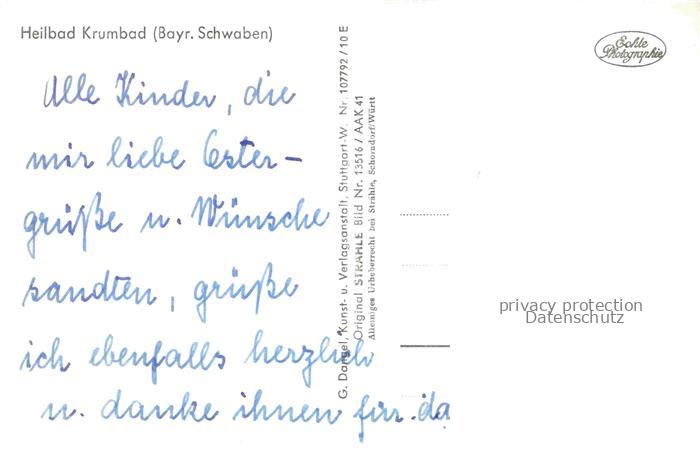 Heilbad Krumbad (Bayr. Schwaben)
Echte
Photographie
Alle Kinder, die
mir liebe Oster-
grüße u. Wünsche
sandten, grüße
ich ebenfalls herzlich
u. danke ihnen für da
G. Dangel, Kunst- u. Verlagsanstalt, Stuttgart-W. Nr. 107792 / 10 E
Original STRÄHLE Bild Nr. 13516 / AAK 41
Alleiniges Urheberrecht bei Strähle, Schorndorf/Württ
privacy protection
Datenschutz